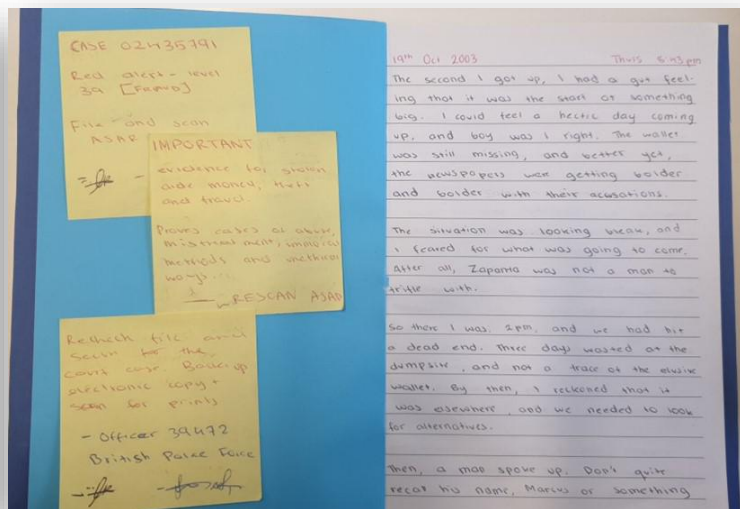 CASE 02435791
Red alert - level
39 [FRAUD]
File and scan
ASAP
IMPORTANT
evidence for stolen
aide money, theft
and fraud.
Proves cases of abuse,
mistreatment,
methods and
ways...
RESCAN ASAP
Recheck file and
scan for the
court case. Back-up
electronic copy +
scan for prints
- Officer 39472
British Police Force
19th Oct 2003 Thurs 8:43pm
The second I got up, I had a gut feel-
ing that it was the start of something
big. I could feel a hectic day coming
up, and boy was I right. The wallet
was still missing, and better yet,
the newspapers were getting bolder
and bolder with their acusations.
The situation was looking bleak, and
I feared for what was going to come.
After all, Zaparna was not a man to
trifle with.
So there I was, 2pm, and we had hit
a dead end. Three days wasted at the
dumpsite, and not a trace of the elusive
wallet. By then, I reckoned that it
was elsewhere, and we needed to look
for alternatives.
Then, a man spoke up. Don't quite
recal his name, Marcus or something